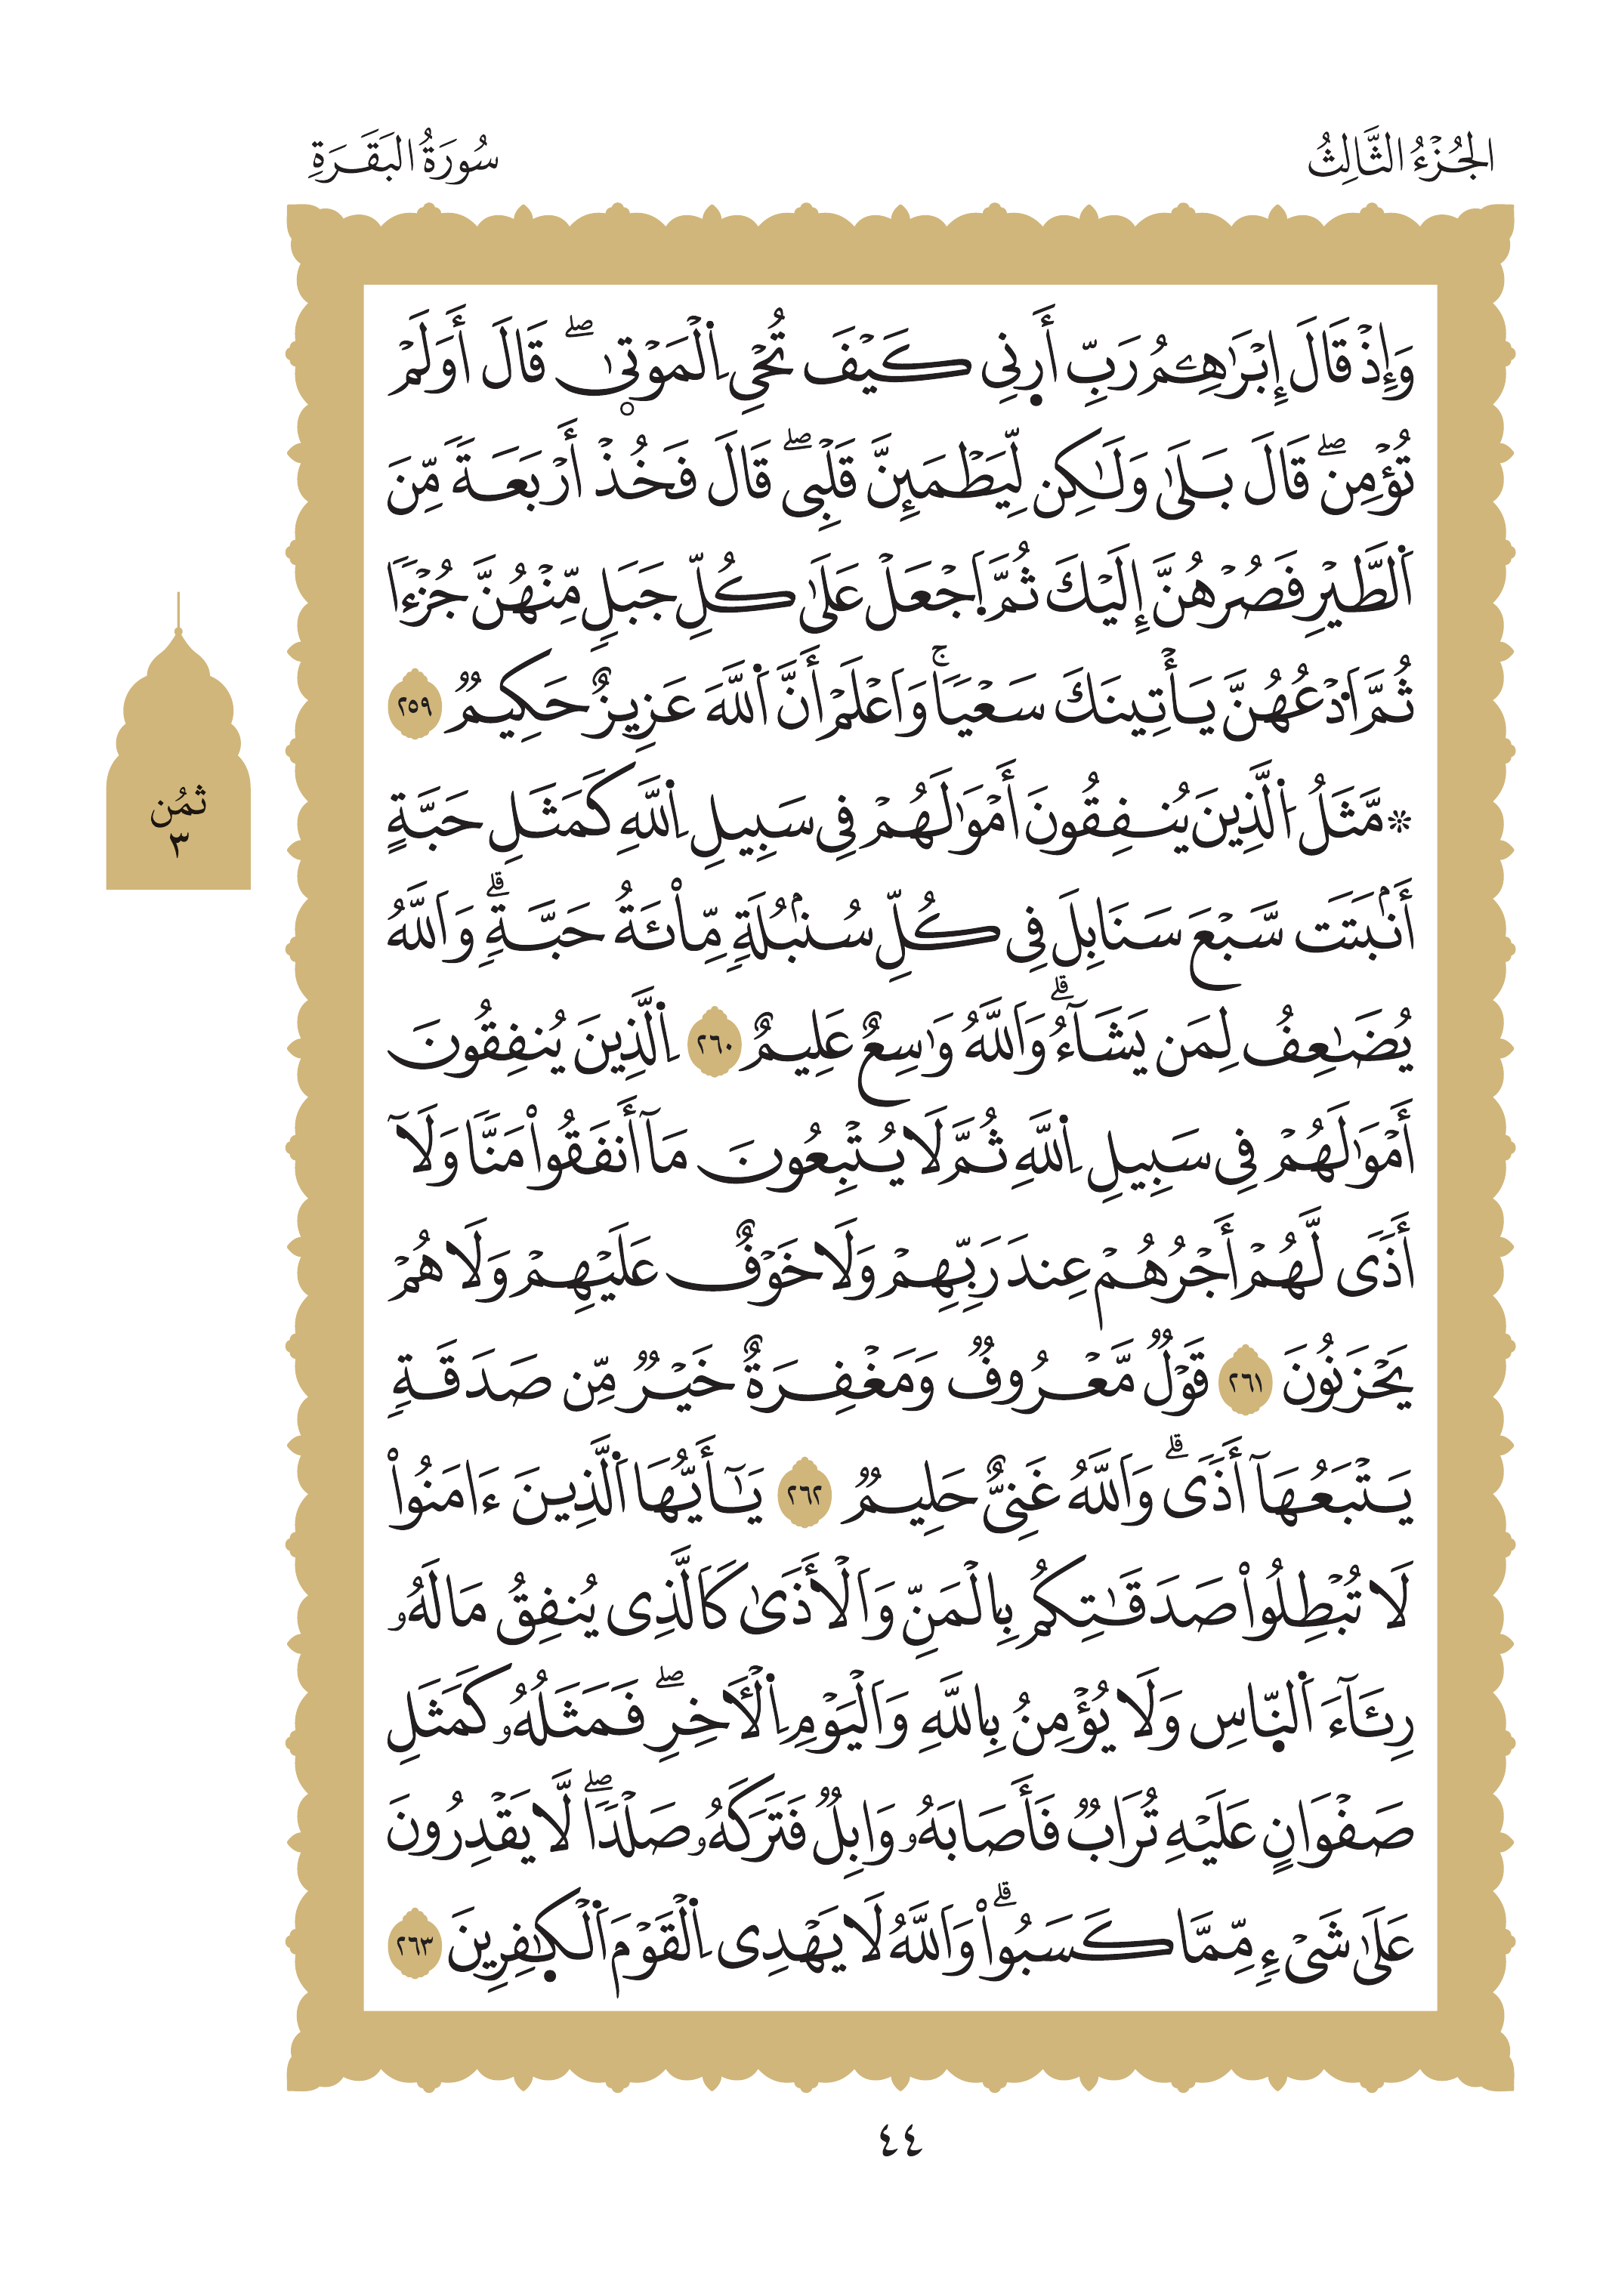 الجُزْءُ الثَّالِثُ
سُورَةُ البَقَرَةِ
وَإِذْ قَالَ إِبْرَٰهِۦمُ رَبِّ أَرِنِى كَيْفَ تُحْىِ اِ۬لْمَوْتىٰۖ قَالَ أَوَلَمْ
تُؤْمِنۖ قَالَ بَلَىٰ وَلَٰكِن لِّيَطْمَئِنَّ قَلْبِىۖ قَالَ فَخُذْ أَرْبَعَةً مِّنَ
اَ۬لطَّيْرِ فَصُرْهُنَّ إِلَيْكَ ثُمَّ اَ۪جْعَلْ عَلَىٰ كُلِّ جَبَلٍ مِّنْهُنَّ جُزْءًا
ثُمَّ اَ۟دْعُهُنَّ يَأْتِينَكَ سَعْيًاۚ وَاَعْلَمْ أَنَّ اَ۬للَّهَ عَزِيزٌ حَكِيمٌ ٢٥٩
۞ مَّثَلُ اُ۬لَّذِينَ يُنفِقُونَ أَمْوَٰلَهُمْ فِى سَبِيلِ اِ۬للَّهِ كَمَثَلِ حَبَّةٍ
أَنۢبَتَت سَّبْعَ سَنَابِلَ فِى كُلِّ سُنۢبُلَةٍ مِّاْئَةُ حَبَّةٍۗ وَاَللَّهُ
يُضَٰعِفُ لِمَن يَشَآءُۗ وَاَللَّهُ وَٰسِعٌ عَلِيمٌ ٢٦٠ اِ۬لَّذِينَ يُنفِقُونَ
أَمْوَٰلَهُمْ فِى سَبِيلِ اِ۬للَّهِ ثُمَّ لَا يُتْبِعُونَ مَآ أَنفَقُواْ مَنًّا وَلَآ
أَذًى لَّهُمْ أَجْرُهُمْ عِندَ رَبِّهِمْ وَلَا خَوْفٌ عَلَيْهِمْ وَلَا هُمْ
يَحْزَنُونَ ٢٦١ قَوْلٌ مَّعْرُوفٌ وَمَغْفِرَةٌ خَيْرٌ مِّن صَدَقَةٍ
يَتْبَعُهَآ أَذًىۗ وَاَللَّهُ غَنِىٌّ حَلِيمٌ ٢٦٢ يَٰٓأَيُّهَا اَ۬لَّذِينَ ءَامَنُواْ
لَا تُبْطِلُواْ صَدَقَٰتِكُم بِالْمَنِّ وَاَلْأَذَىٰ كَاَلَّذِى يُنفِقُ مَالَهُۥ
رِئَآءَ اَ۬لنّ۪اسِ وَلَا يُؤْمِنُ بِاللَّهِ وَاَلْيَوْمِ اِ۬لْأٓخِرِۖ فَمَثَلُهُۥ كَمَثَلِ
صَفْوَانٍ عَلَيْهِ تُرَابٌ فَأَصَابَهُۥ وَابِلٌ فَتَرَكَهُۥ صَلْدًاۖ لَّا يَقْدِرُونَ
عَلَىٰ شَىْءٍ مِّمَّا كَسَبُواْۗ وَاَللَّهُ لَا يَهْدِى اِ۬لْقَوْمَ اَ۬لْكٰ۪فِرِينَ ٢٦٣
ثمُن
٣
٤٤